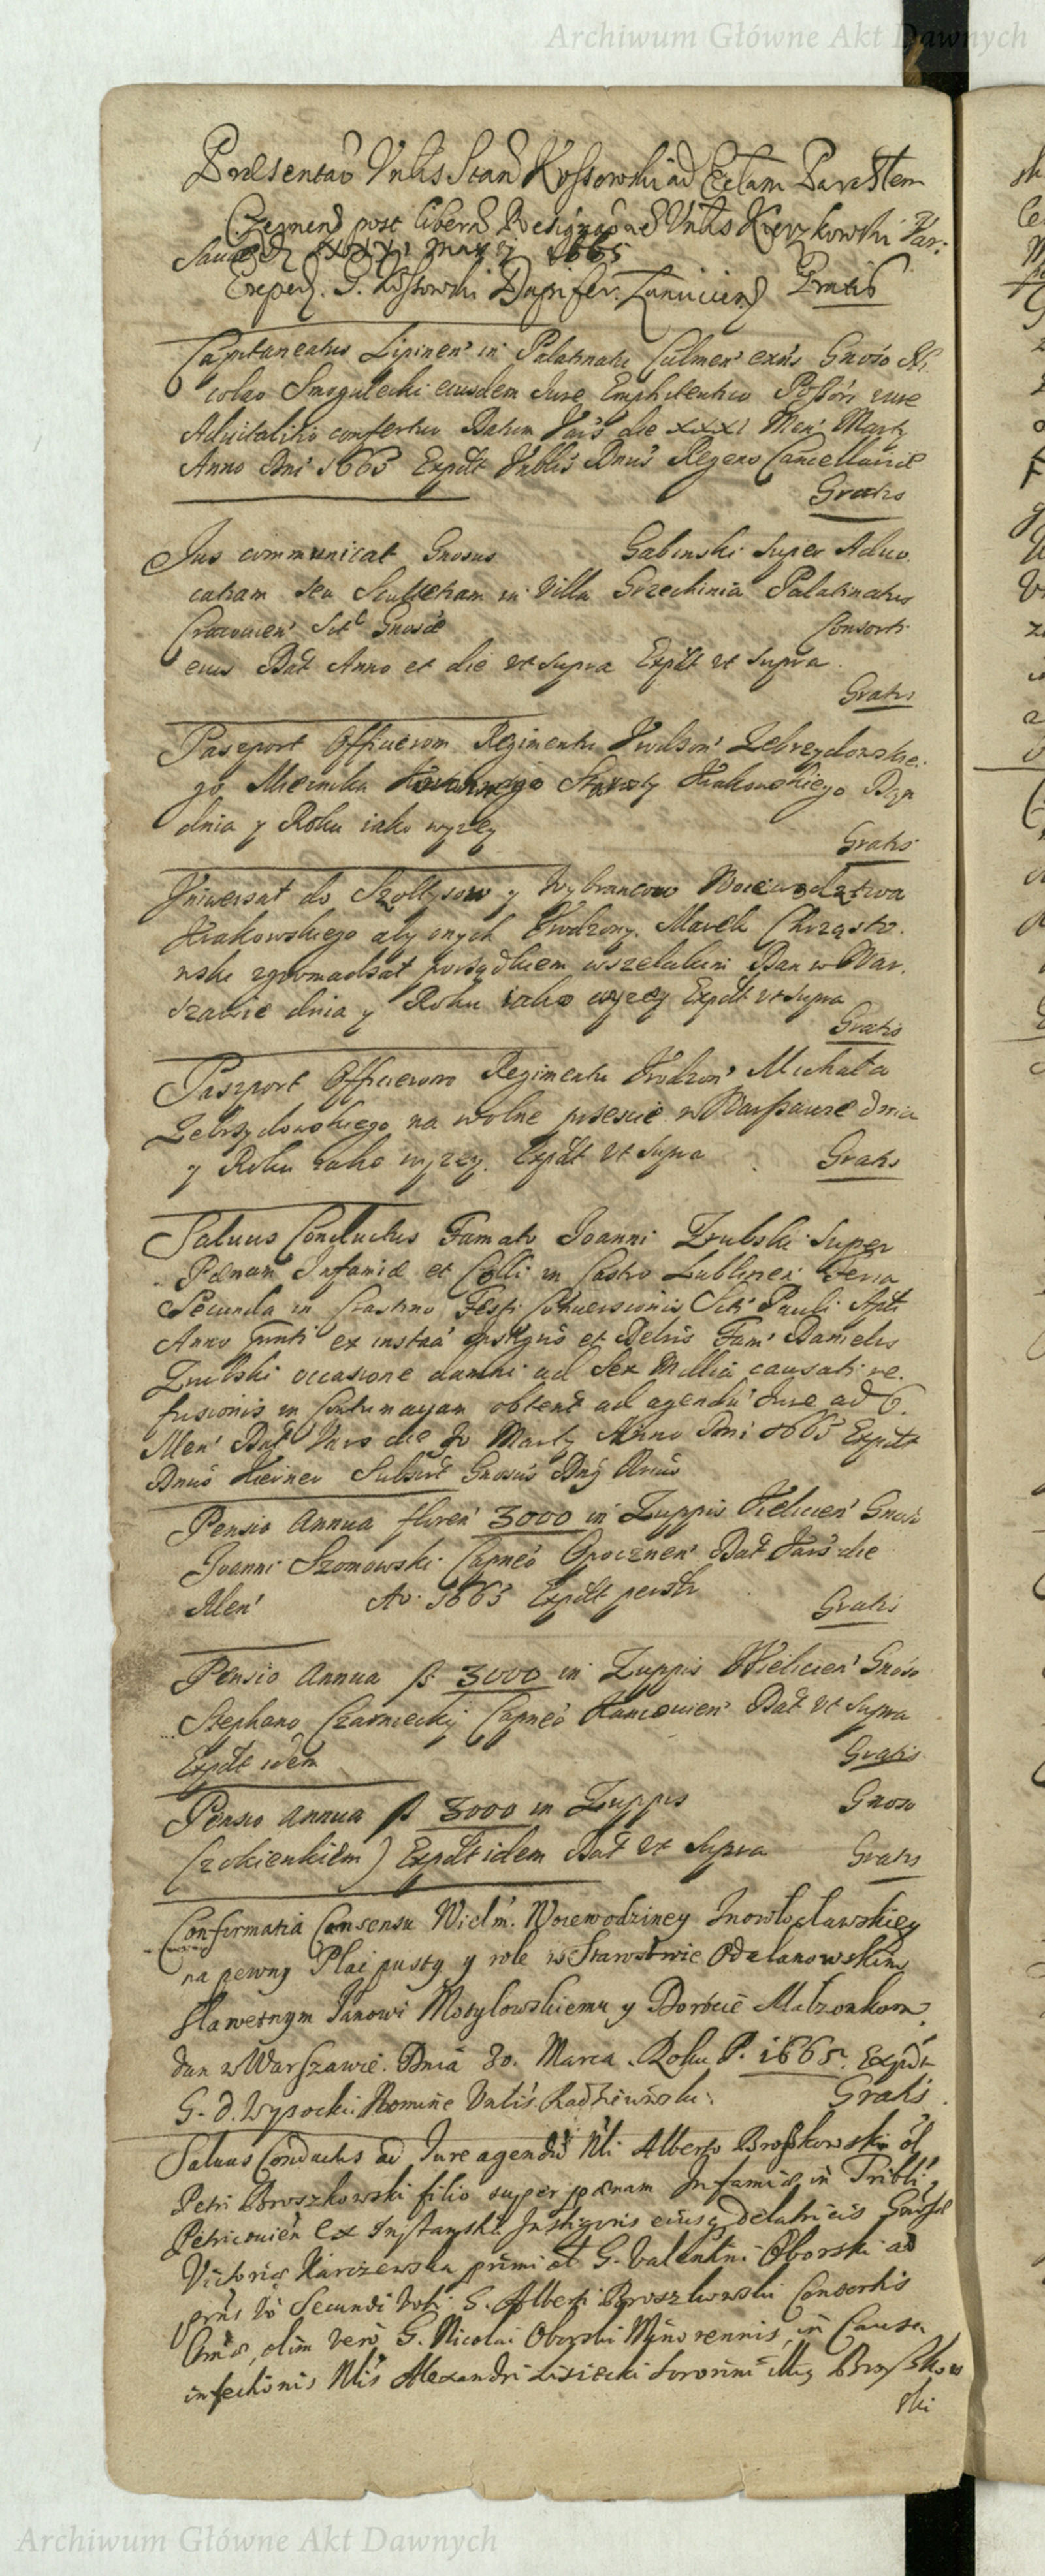 Archiwum Główne Akt Dawnych
Praesentaõ Vnlis Stan Kossowski ad Ecclam Par
post liberã Resignaõne Vnlis Kierzkowski Var:
saue XXXI Martij 1665
Exped. G. Kossowski Dapifer Gratis
Capitaneatus Lipinen' in Palatinatu Culmen' exñs Gnoso Ni
colao Smogulecki eiusdem Jure Emphiteutico Possõri iure
Aduitalitio confertur Datum Vars die XXXI Men' Martij
Anno Dni 1665 Expdt Vnblis Dnus Regens Cancellariae
Gratis
Jus communicat Gnosus Gabinski super Aduo
catiam seu Scultetiam in Villa Grzechinia Palatinatus
Cracouien' Sitt Gnosae Consorti
eius Dat Anno et die vt supra Expdt vt supra
Gratis
Paszport Officierom Regimentu Vrodzon' Zebrzydowskie
go Miecznika Koronnego Starosty Krakowskiego Dan
dnia y Roku iako wyzey
Gratis
Vniwersał do Szołtysow y Wybrancow Woiewodztwa
Krakowskiego aby onych Vrodzony Marek Chrząsto
wski zgromadzał porządkiem wszelakim Dan w War
szawie dnia y Roku iako wyzey Expdt vt supra
Gratis
Paszport Officierom Regimentu Vrodzon' Michała
Zebrzydowskiego na wolne przescie w Warszawie dnia
y Roku iako wyzey. Expdt vt supra Gratis
Saluus Conductus Famato Joanni Zrubski super
Paenam Infamiae et Colli in Castro Lublinen' Feria
Secunda in Crastino Festi Conuersionis Scti Pauli Apli
Anno Prnti ex instña Instigris et Deltris Fam' Danielis
Zrubski occasione damni ad Sex Millia causati re
fusionis in Contumatiam obtent ad agendũ Jure ad 6
Men' Dat Vars die 30 Marty Anno Dni 1665 Expdt
Dnus Subscr Gnosus Dnus
Pensio Annua floren' 3000 in Zuppis Vielicien' Gnoso
Joanni Szomowski Capneo Opocznen' Dat Vars die
Men' Ao. 1665 Expdt
Gratis
Pensio Annua fl 3000 in Zuppis Wielicien' Gnoso
Stephano Czarniecky Capneo Kaniouien' Dat vt supra
Expdt idem Gratis
Pensio Annua fl 3000 in Zuppis Gnoso
(zokienkiem) Expdt idem Dat vt supra Gratis
Confirmatia Consensu Wielm. Woiewodziney Inowłocławskiey
na pewny Plac pusty y role w Starostwie Odalanowskim
sławetnym Janowi Motylowskiemu y Dorocie Malzonkom
dan w Warszawie. Dnia 30. Marca. Roku P. 1665. Expdt
G. D. Wysocki Nomine Vnlis Radzieiowski. Gratis.
Saluus Conductus ad Jure agendũ Nli Alberto Broszkowski ol
Petri Broszkowski filio super paenam Infamiae in Tribli
Petricouien ex Instantia Instigoris eiusq delatricis Gnosae
Victoriae Karczewska primi ol G. Valentini Oborski ad
prns vo Secundi Voti G. Alberti Broszkowski Consortis
olim vero G. Nicolai Oborski Minorennis, in Causa
infectionis Nlis Alexandri Lisiecki Broszkow
ski
Archiwum Główne Akt Dawnych